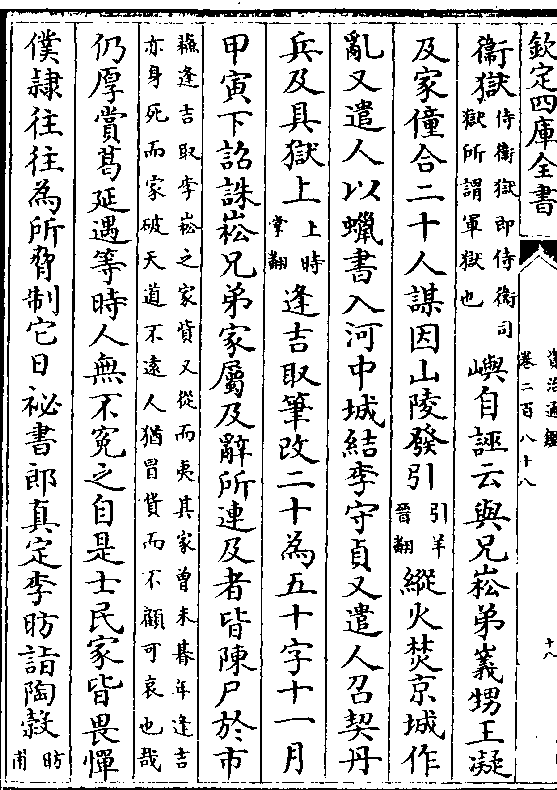 欽定四庫全書
資治通鑑
卷二百八十八
十八
衞獄侍衞獄即侍衞司獄所謂軍獄也嶼自誣云與兄崧弟㠖甥王凝
及家僮合二十人謀因山陵發引引羊晉翻縱火焚京城作
亂又遣人以蠟書入河中城結李守貞又遣人召契丹
兵及具獄上上時掌翻逢吉取筆改二十為五十字十一月
甲寅下詔誅崧兄弟家屬及辭所連及者皆陳尸於市
蘇逢吉取李崧之家貲又從而夷其家曾未朞年逢吉
亦身死而家破天道不遠人猶冒貨而不顧可哀也哉
仍厚賞葛延遇等時人無不冤之自是士民家皆畏憚
僕隸往往為所脅制它日祕書郎真定李昉詣陶穀昉甫